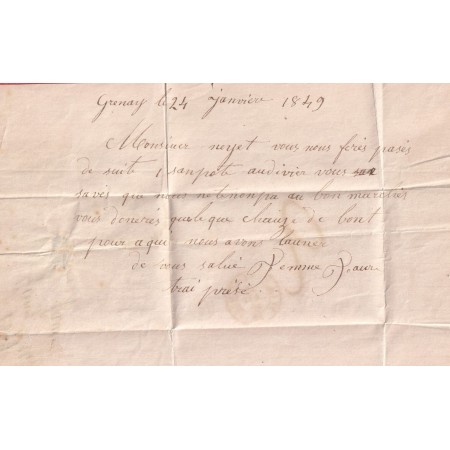 Grenay le 24 janvière 1849
Monsieur neyet vous nous ferés pasés
de suite 1 sanpote audivier vous
savés que nous ne tenon pa au bon marchés
vous donerés quelque chauze de bont
pour a qui nous avons l'auner
de vous salué Femme Faure
trai présé